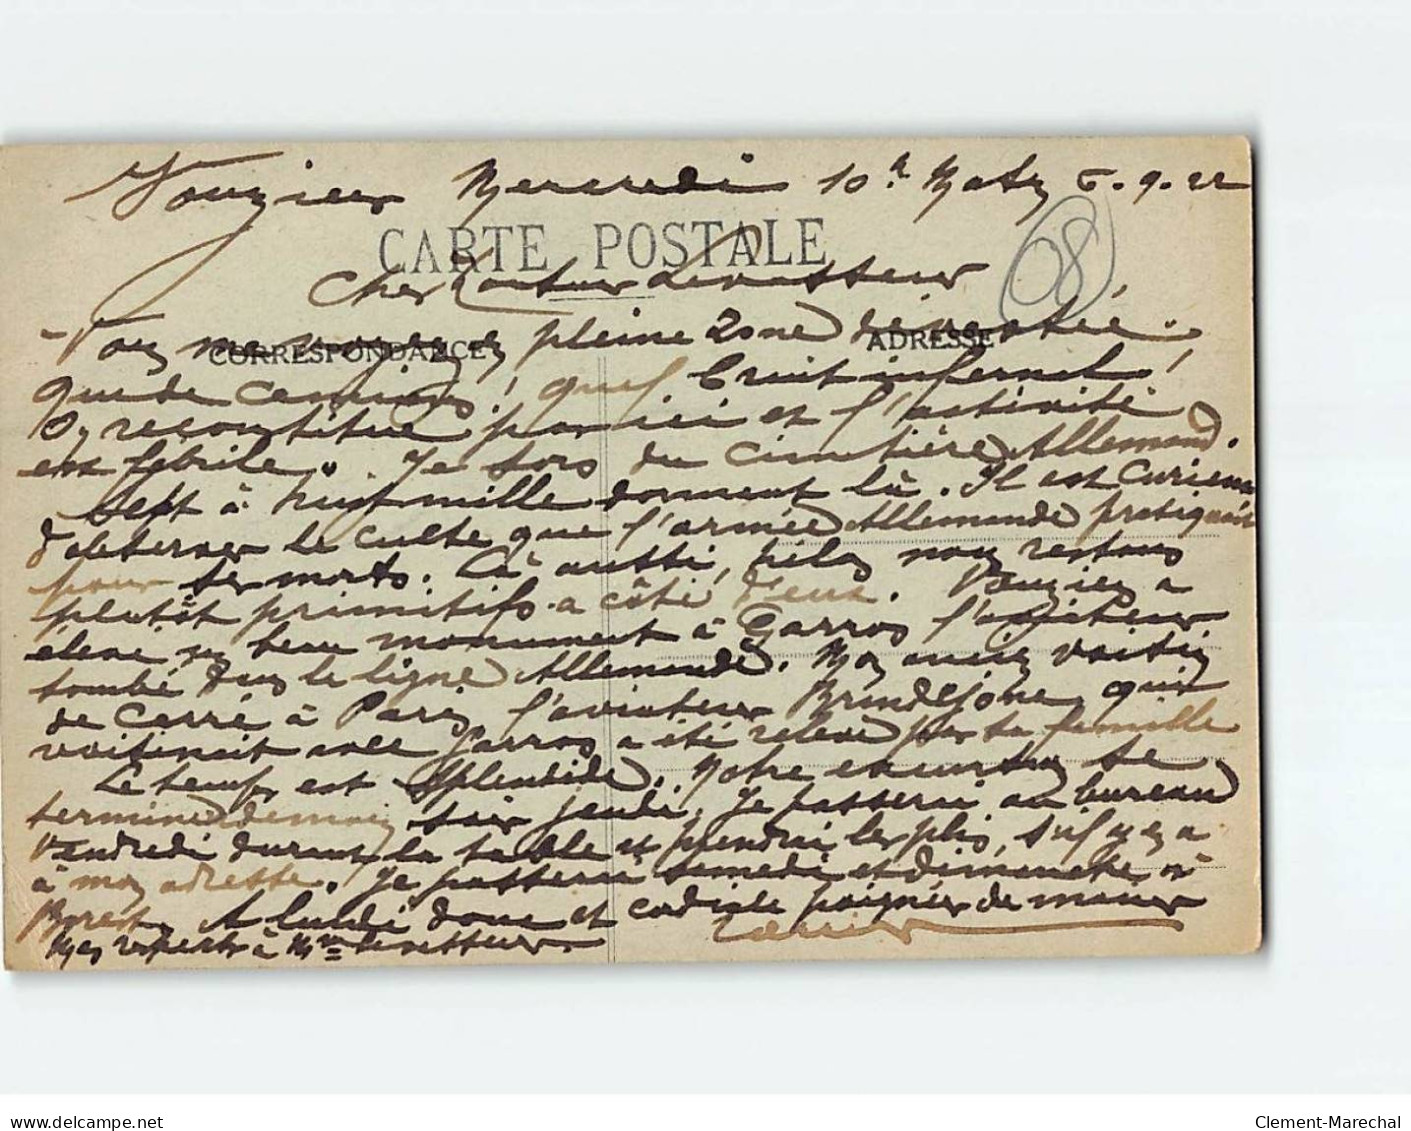 Vouziers Mercredi 10h Matin 6.9.22
CARTE POSTALE
08
Cher Docteur Levasseur
CORRESPONDANCE
ADRESSE
Vous me voyez en pleine zone dévastée.
que de camions, quel bruit infernal,
On reconstitue par ici et l'activité
est fébrile. Je sors du cimetière Allemand.
Sept à huit mille dorment là. Il est Curieux
d'observer le culte que l'armée Allemande pratiquait
pour ses morts. Là aussi, hélas nous restons
plutôt primitifs à côté d'eux. Vouziers a
élevé un beau monument à Garros l'aviateur
tombé dans les lignes Allemandes. Mon ancien voisin
de Carré à Paris, l'aviateur Brindejonc qui
voisinait avec Garros a été relevé par sa famille
Le temps est splendide. Notre excursion se
termine demain soir jeudi. Je passerai au bureau
Vendredi durant la table et prendrai les plis, s'il y en a
à mon adresse. Je passerai samedi et dimanche à
Brest. A lundi donc et cordiale poignée de main
Mes respects à Mme Levasseur.